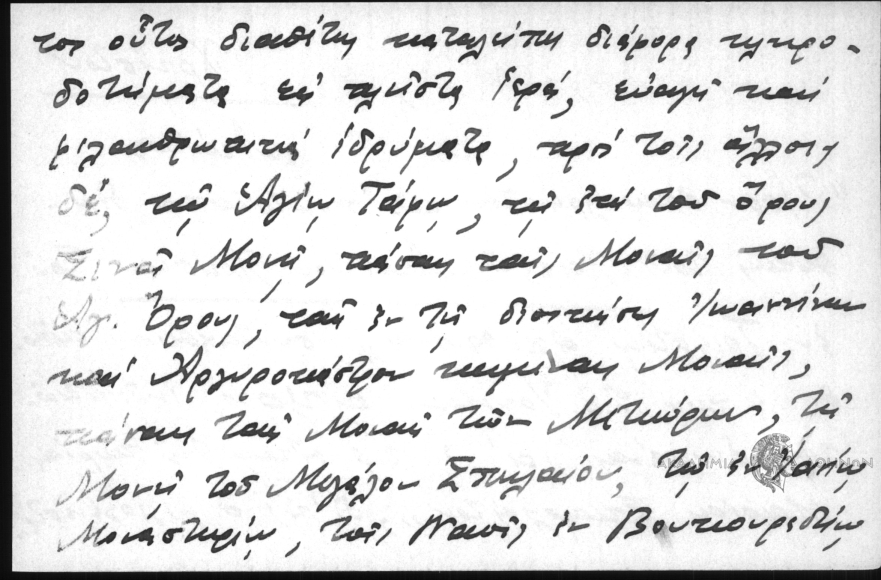 τος οὗτος διαθέτης καταλείπει διάφορα κληρο-
δοτήματα εἰς πλεῖστα ἱερά, εὐαγῆ καὶ
φιλανθρωπικά ἱδρύματα, πρός τοῖς ἄλλοις
δέ, τῷ Ἁγίῳ Τάφῳ, τῇ ἐπί τοῦ ὄρους
Σινᾶ Μονῇ, πάσαις ταῖς Μοναῖς τοῦ
Ἁγ. Ὄρους, ταῖς ἐν τῇ διοικήσει Ἰωαννίνων
καί Ἀργυροκάστρου κειμέναις Μοναῖς,
πάσαις ταῖς Μοναῖς τῶν Μετεώρων, τῇ
Μονῇ τοῦ Μεγάλου Σπηλαίου, τῷ ἐν
Μοναστηρίῳ, τοῖς Ναοῖς ἐν Βουκουρεστίῳ